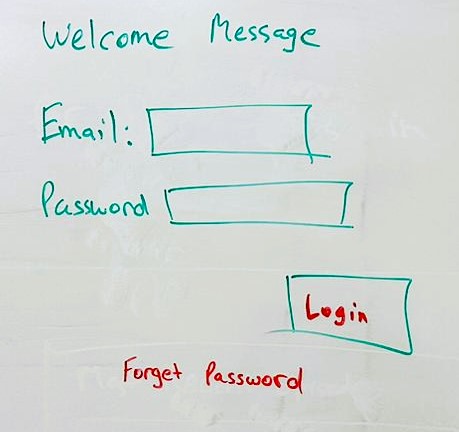 Welcome Message
Email:
Password
Login
Forget Password